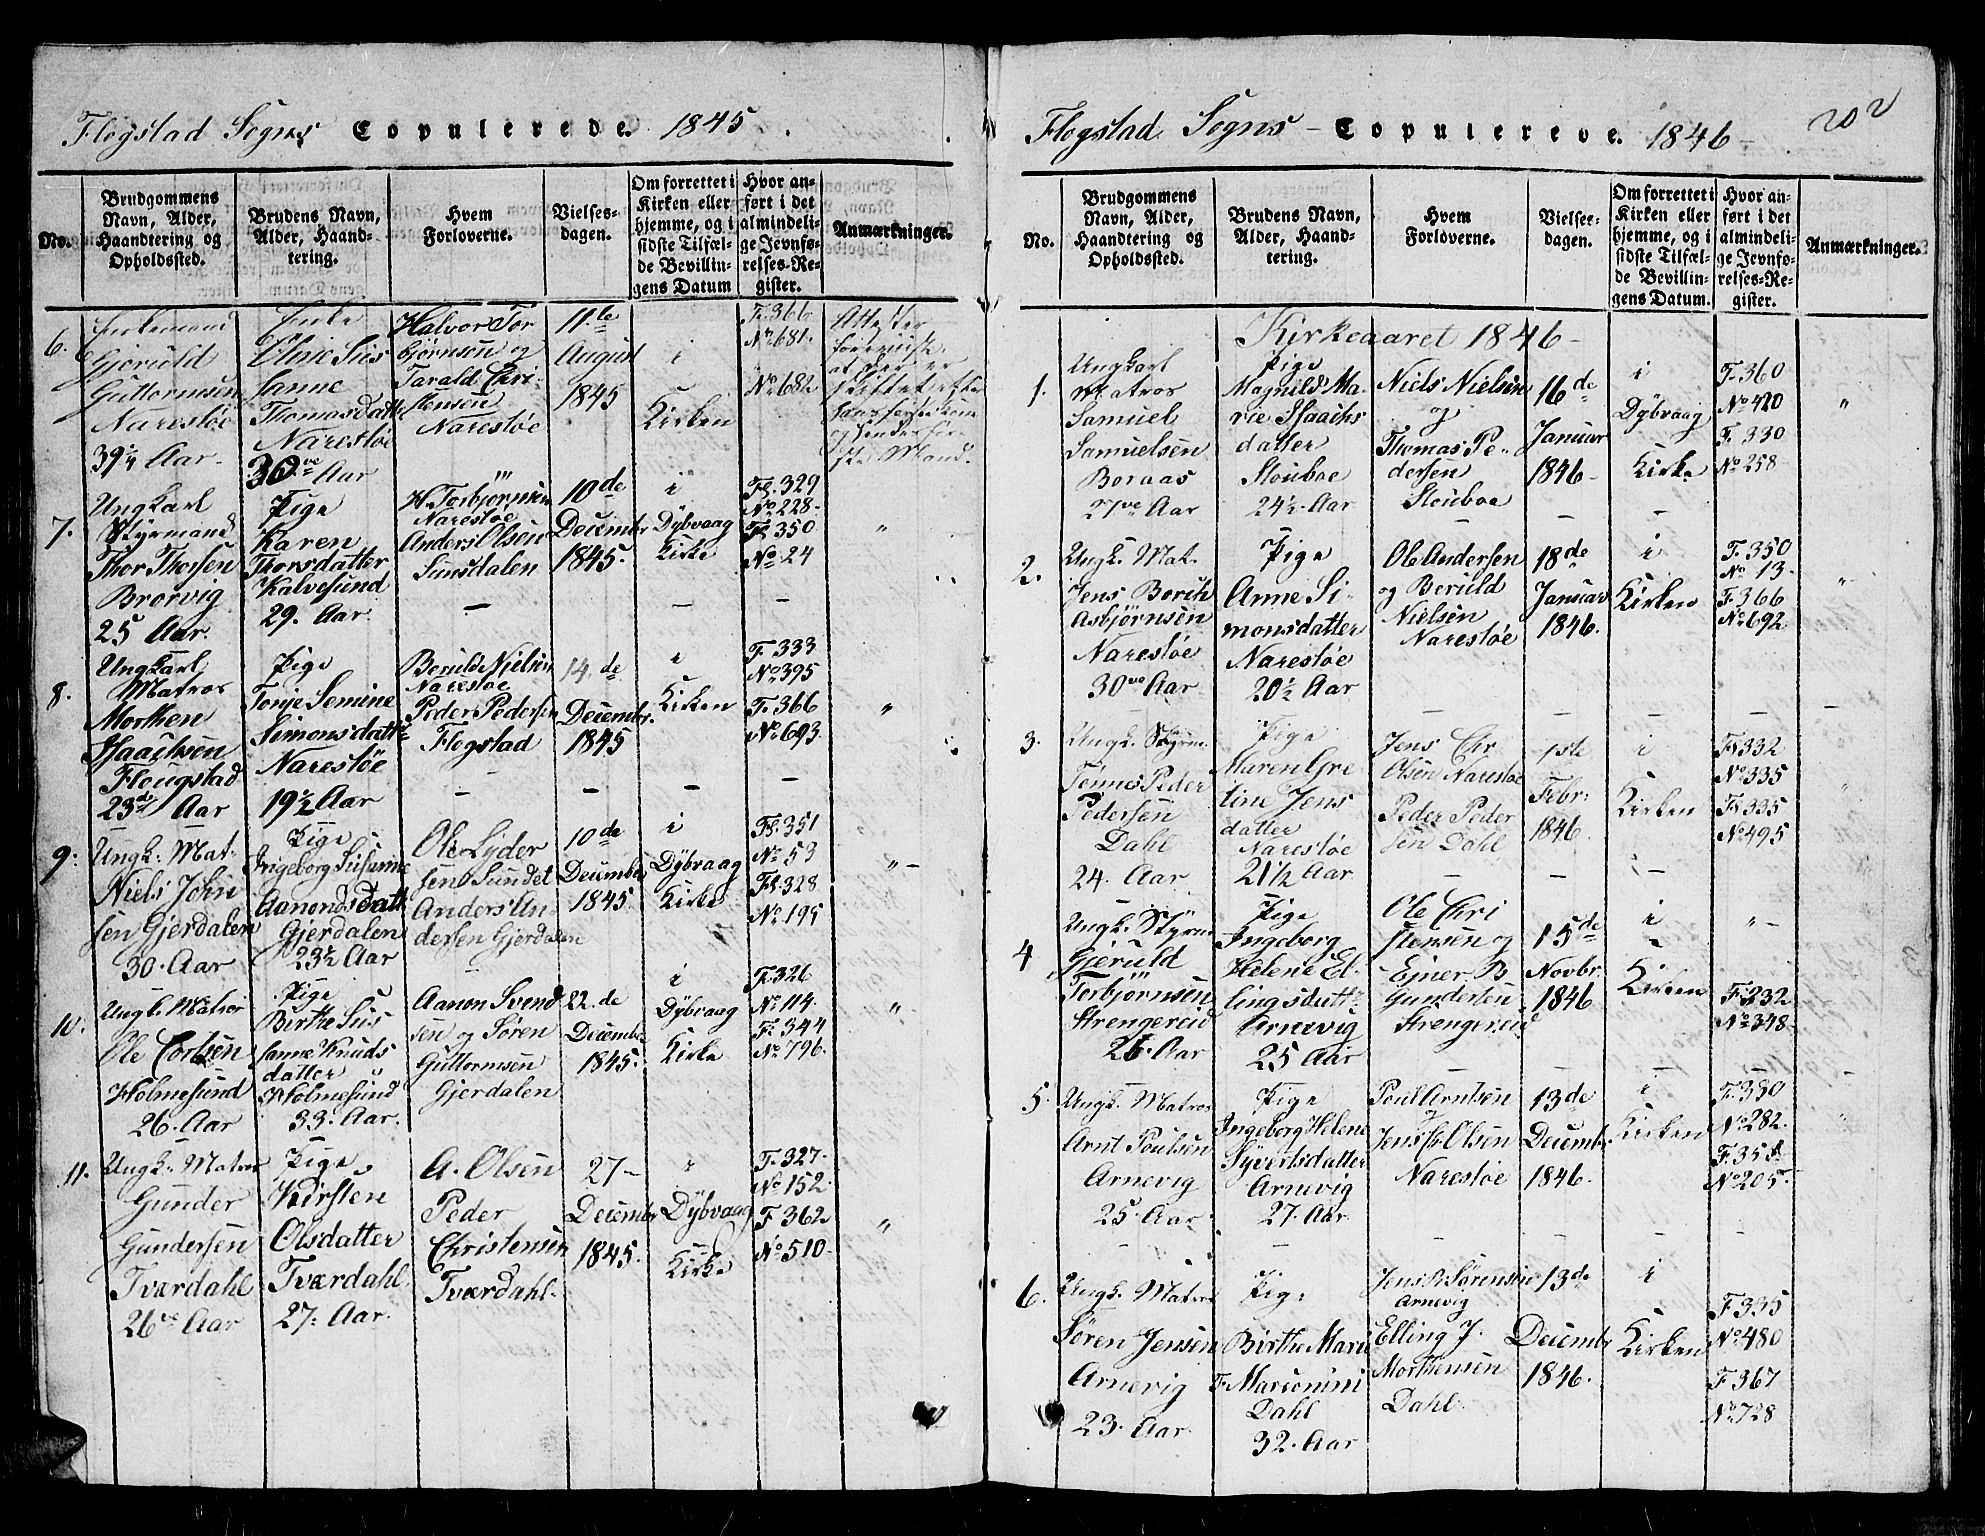 Flogstad Sogns Copulerede. 1845.
No.
Brudgommens
Navn, Alder,
Haandtering og
Opholdssted.
Brudens Navn,
Alder, Haand-
tering.
Hvem
Forloverne.
Vielses-
dagen.
Om forrettet i
Kirken eller
hjemme, og i
sidste Tilfæl-
de Bevillin-
gens Datum
Hvor an-
ført i det
almindeli-
ge Jevnfø-
relses-Re-
gister.
Anmærkninger.
6.
Enkemand
Gjeruld
Guttormsen
Narestøe
39¼ Aar.
Enke
Eline Sus
anne
Thomasdatt
Narestøe
30ve Aar
Halvor Tor
bjørnsen og
Tarald Chri-
stensen
Narestøe
11.te
August
1845
i
Kirken
F. 366
No 681.
No 682
Attester
foreviist
at der er
skiftet efter
hans
og hendes for-
Mand.
7.
Ungkarl
Styrmand
Thor Thorsen
Brorvig
25 Aar.
Pige
Karen
Thorsdatter
Kalvesund
29. Aar
H. Torbjørnsen
Narestøe
Anders Olsen
Simsdalen
10de
Decembr
1845.
i
Dybvaag
Kirke
Fl. 329
No 228-
Fl. 350
No 24
"
8.
Ungkarl
Matros
Morthen
Isaachsen
Flougstad
23de Aar
Pige
Tonje Semine
Simonsdattr
Narestøe
19½ Aar
Beruld Nielsen
Narestøe
Peder Pedersen
Flogstad
14.de
Decembr.
1845
i
Kirken
F. 333
No 395
F. 366
No 693
"
9.
Ungk. Mat.
Niels John
sen Gjerdalen
30. Aar
Pige
Ingeborg Susanne
Aanonds Datt
Gjerdalen
23½ Aar
Ole Lyder
sen Sundet
Anders An
dersen Gjerdalen
10de
Decembr
1845
i
Dybvaag
Kirke
Fl. 351
No 53
Fl. 328
No 195
"-
10.
Ungk. Matros
Ole
Holmesund
26. Aar
Pige
Birthe Sus
anne Knuds
datter
Holmesund
33. Aar.
Aanon Svend
sen og Søren
Guttormsen
Gjerdalen
22.de
Decembr
1845.
i
Dybvaag
Kirke
F. 326
No 114.
F. 344
No 796.
"
11.
Ungk. Matros
Gunder
Gundersen
Tværdahl
26ve Aar
Pige
Kirsten
Olsdatter
Tværdahl
27. Aar.
A. Olsen
Peder
Christensen
Tværdahl.
27-
Decembr
1845.
"
Dybvaag
Kirke
F. 327.
No 152.
F 362
No 510.
"
Flogstad Sogns Copulerede. 1846
202
No.
Brudgommens
Navn, Alder,
Haandtering og
Opholdssted.
Brudens Navn,
Alder, Haand-
tering.
Hvem
Forloverne.
Vielses-
dagen.
Om forrettet i
Kirken eller
hjemme, og i
sidste Tilfæl-
de Bevillin-
gens Datum.
Hvor an-
ført i det
almindeli-
ge Jevnfø-
relses-Re-
gister.
Anmærkninger.
Kirkeaaret 1846
1.
Ungkarl
Matros
Samuel
Samuelsen
Boraas
27ve Aar
Pige
Magnild Ma-
rie Isaachs
datter
Stouboe
24½. Aar
Niels Nielsen
og
Thomas Pe-
dersen
Stouboe
16de
Januar
1846
i
Dybvaag
Kirke
F. 360
No 420
F. 330
No 258
"
2.
Ungk. Mat.
Jens Borith
Asbjørnsen
Narestøe
30ve Aar
Pige
Anne Si-
monsdatter
Narestøe
20½ Aar
Ole Andersen
og Beruld
Nielsen
Narestøe
18de
Januar
1846.
i
Kirken
F. 350
No 13.
F. 366
No 692
"
3.
Ungk. Styrm.
Tønnes Peder
Pedersen
Dahl
24. Aar
Pige
Maren Gre
tine Jens
datter
Narestøe
21½ Aar
Jens Chr
Olsen Narestøe
Peder Peder
sen Dahl
1ste
Febr.
1846
i
Kirken
Fl 332
No 335
Fl 335
No 495
"
4
Ungk. Styrm
Gjeruld
Torbjørnsen
Strengereid
26. Aar
Pige
Ingeborg
Helene El-
lingsdattr
Arnevig
25 Aar
Ole Chri
stensen og
Ejner B
Gundersen
Strengereid
15de
Novbr.
1846
i
Kirken
"
F. 332
No 348
5.
Ungk. Matros
Arnt Poulsen
Arnevig
25. Aar
Pige
Ingeborg Helene
Syvertsdatter
Arnevig
27. Aar
Poul Arntsen
Jens C. Olsen
Narestøe
13de
Decembr.
1846.
i
Kirken
F. 330
No 282.
No 205.
6.
Ungk. Matros
Søren Jensen
Arnevig
23. Aar
Pige
Birthe Marie
T. Marionini
Dahl
32. Aar
Jens R Sørensen
Arnevig
Elling J.
Morthensen
Dahl
13de
Decembr
1846.
i
Kirken
F 335
No 480
F 367
No 728